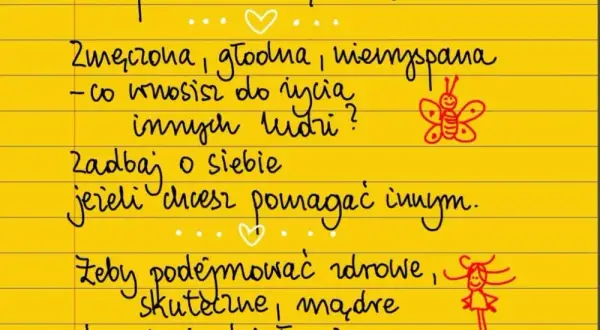 Zmęczona, głodna, niewyspana
- co wnosisz do życia
innych ludzi?
Zadbaj o siebie
jeżeli chcesz pomagać innym.
Żeby podejmować zdrowe,
skuteczne, mądre